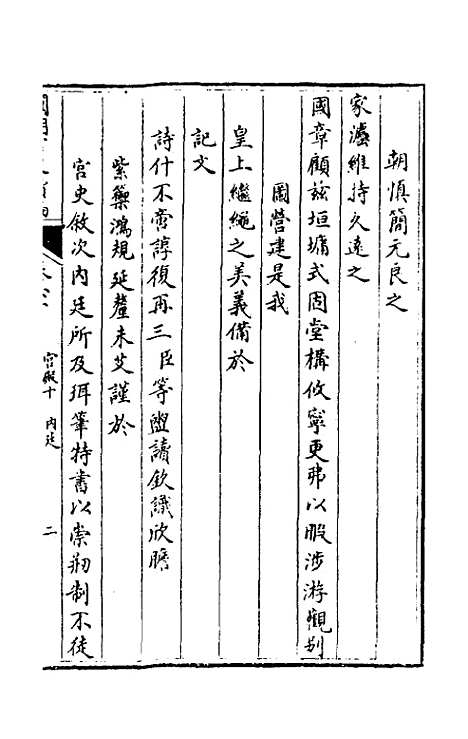 朝慎簡元良之
家灋維持久遠之
國章顧兹垣墉式固堂構攸寧更弗以暇涉游觀別
圖營建是我
皇上繼繩之美義備於
記文
詩什不啻諄復再三臣等盥讀欽識欣瞻
紫籞鴻規延釐未艾謹於
宫史敘次内廷所及珥筆特書以崇剏制不徒
宫殿十 内廷
二